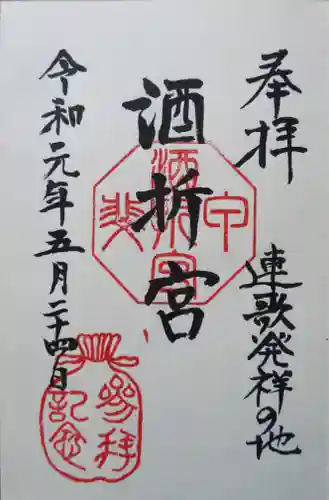 奉拝
連歌発祥の地
酒折宮
令和元年五月二十四日
甲斐
酒折宮
参拝
記念